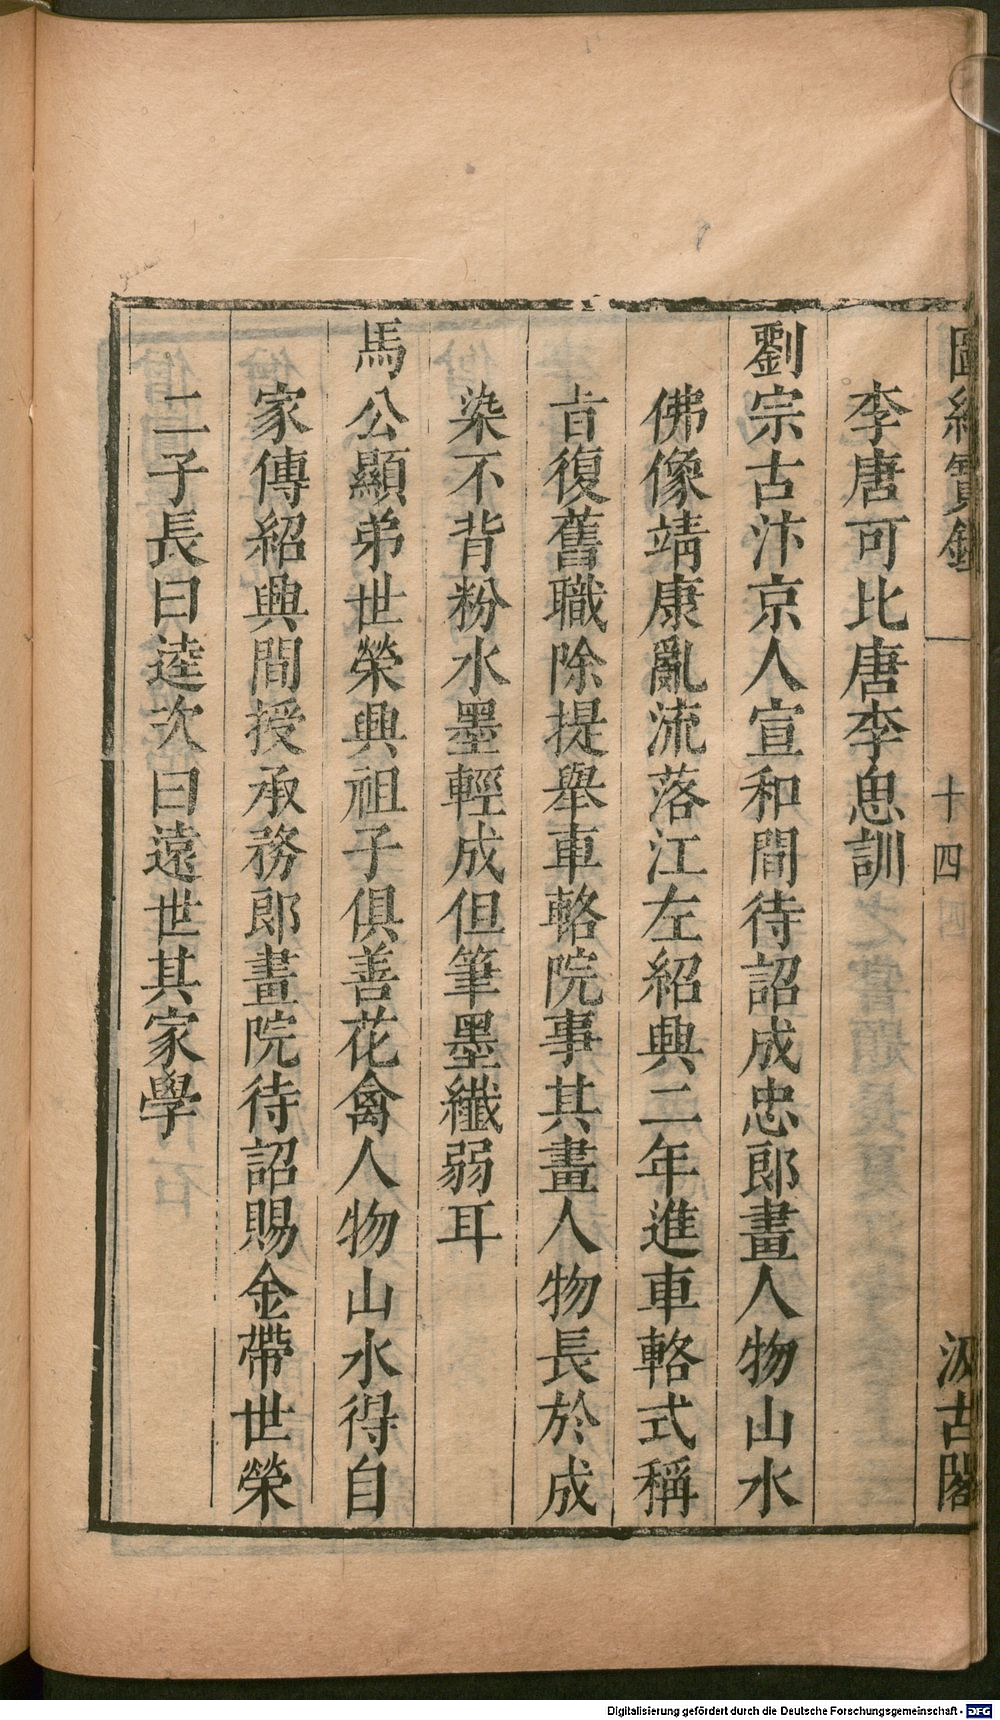 圖繪寶鑑 十四 汲古閣
李唐可比唐李思訓
劉宗古汴京人宣和間待詔成忠郎畫人物山水
佛像靖康亂流落江左紹興二年進車輅式稱
旨復舊職除提舉車輅院事其畫人物長於成
染不背粉水墨輕成但筆墨纖弱耳
馬公顯弟世榮興祖子俱善花禽人物山水得自
家傳紹興間授承務郎畫院待詔賜金帶世榮
二子長曰逵次曰遠世其家學
Digitalisierung gefördert durch die Deutsche Forschungsgemeinschaft - DFG